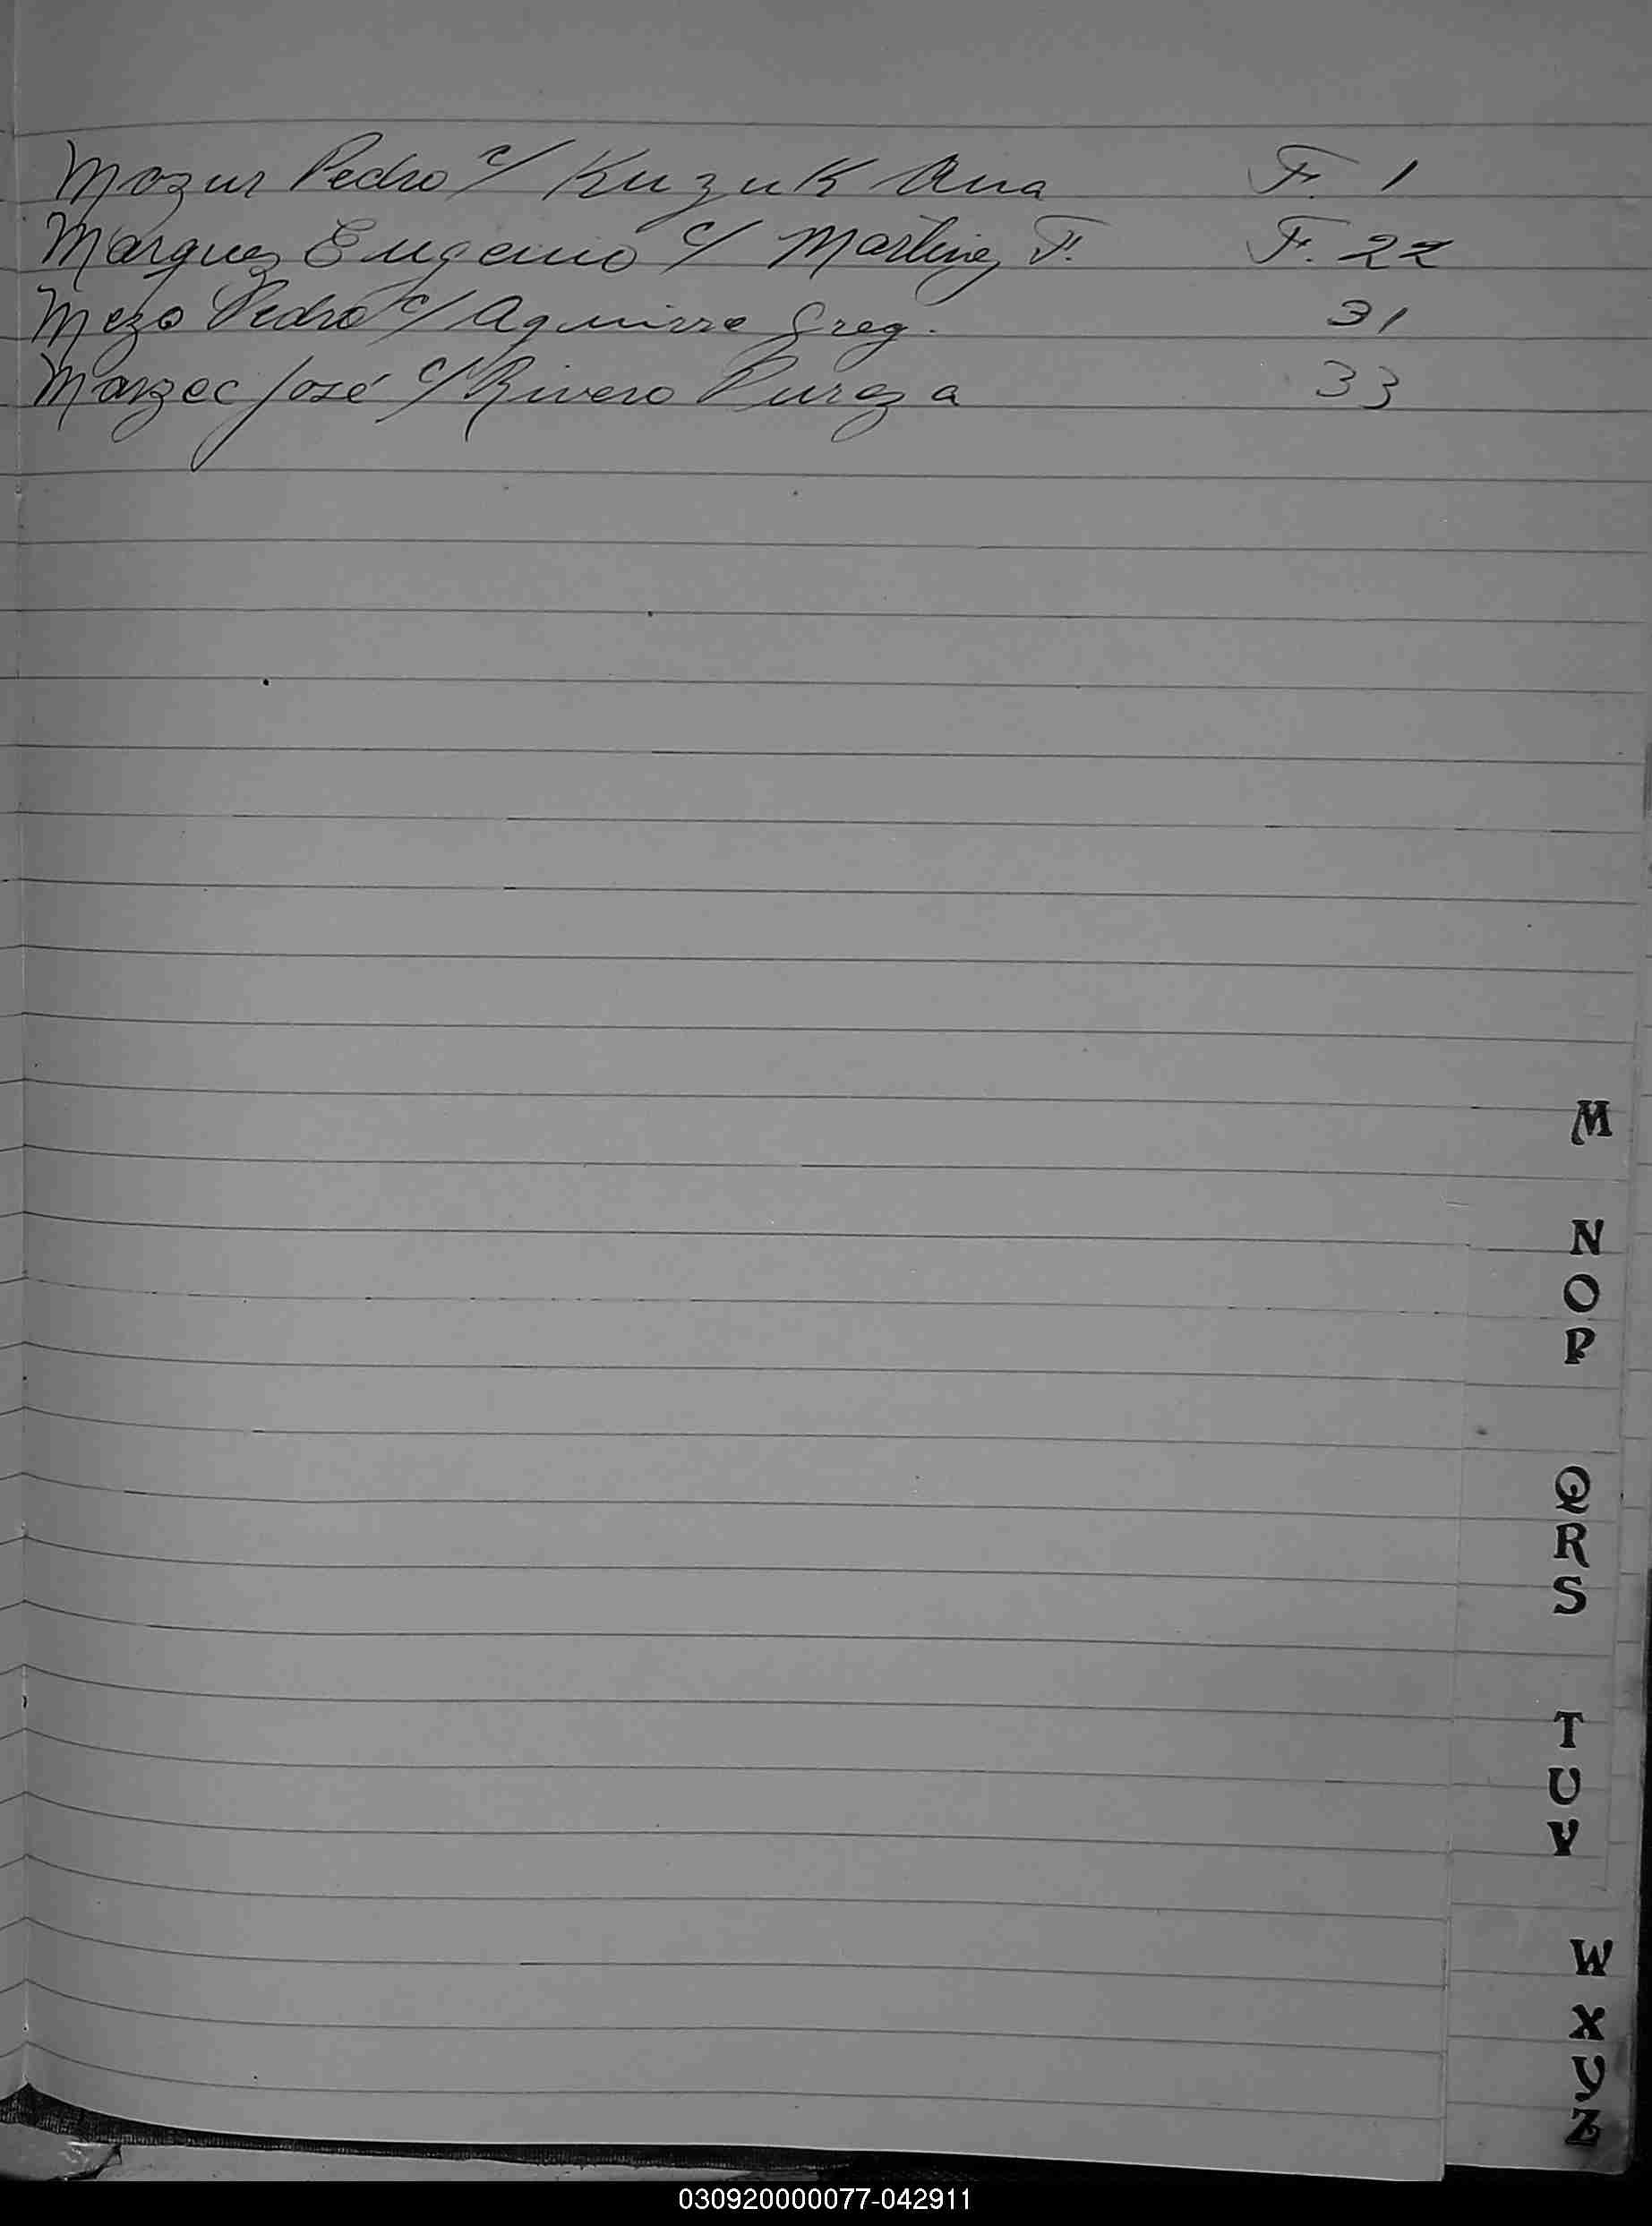 Mozur Pedro c/ Kuzuk Ana F. 1
Marquez Eugenio c/ Martinez F. F. 22
Mezo Pedro c/ Aguirre Greg. 31
Marzec José c/ Rivero Pureza 33
M
N
O
P
Q
R
S
T
U
V
W
X
Y
Z
030920000077-042911